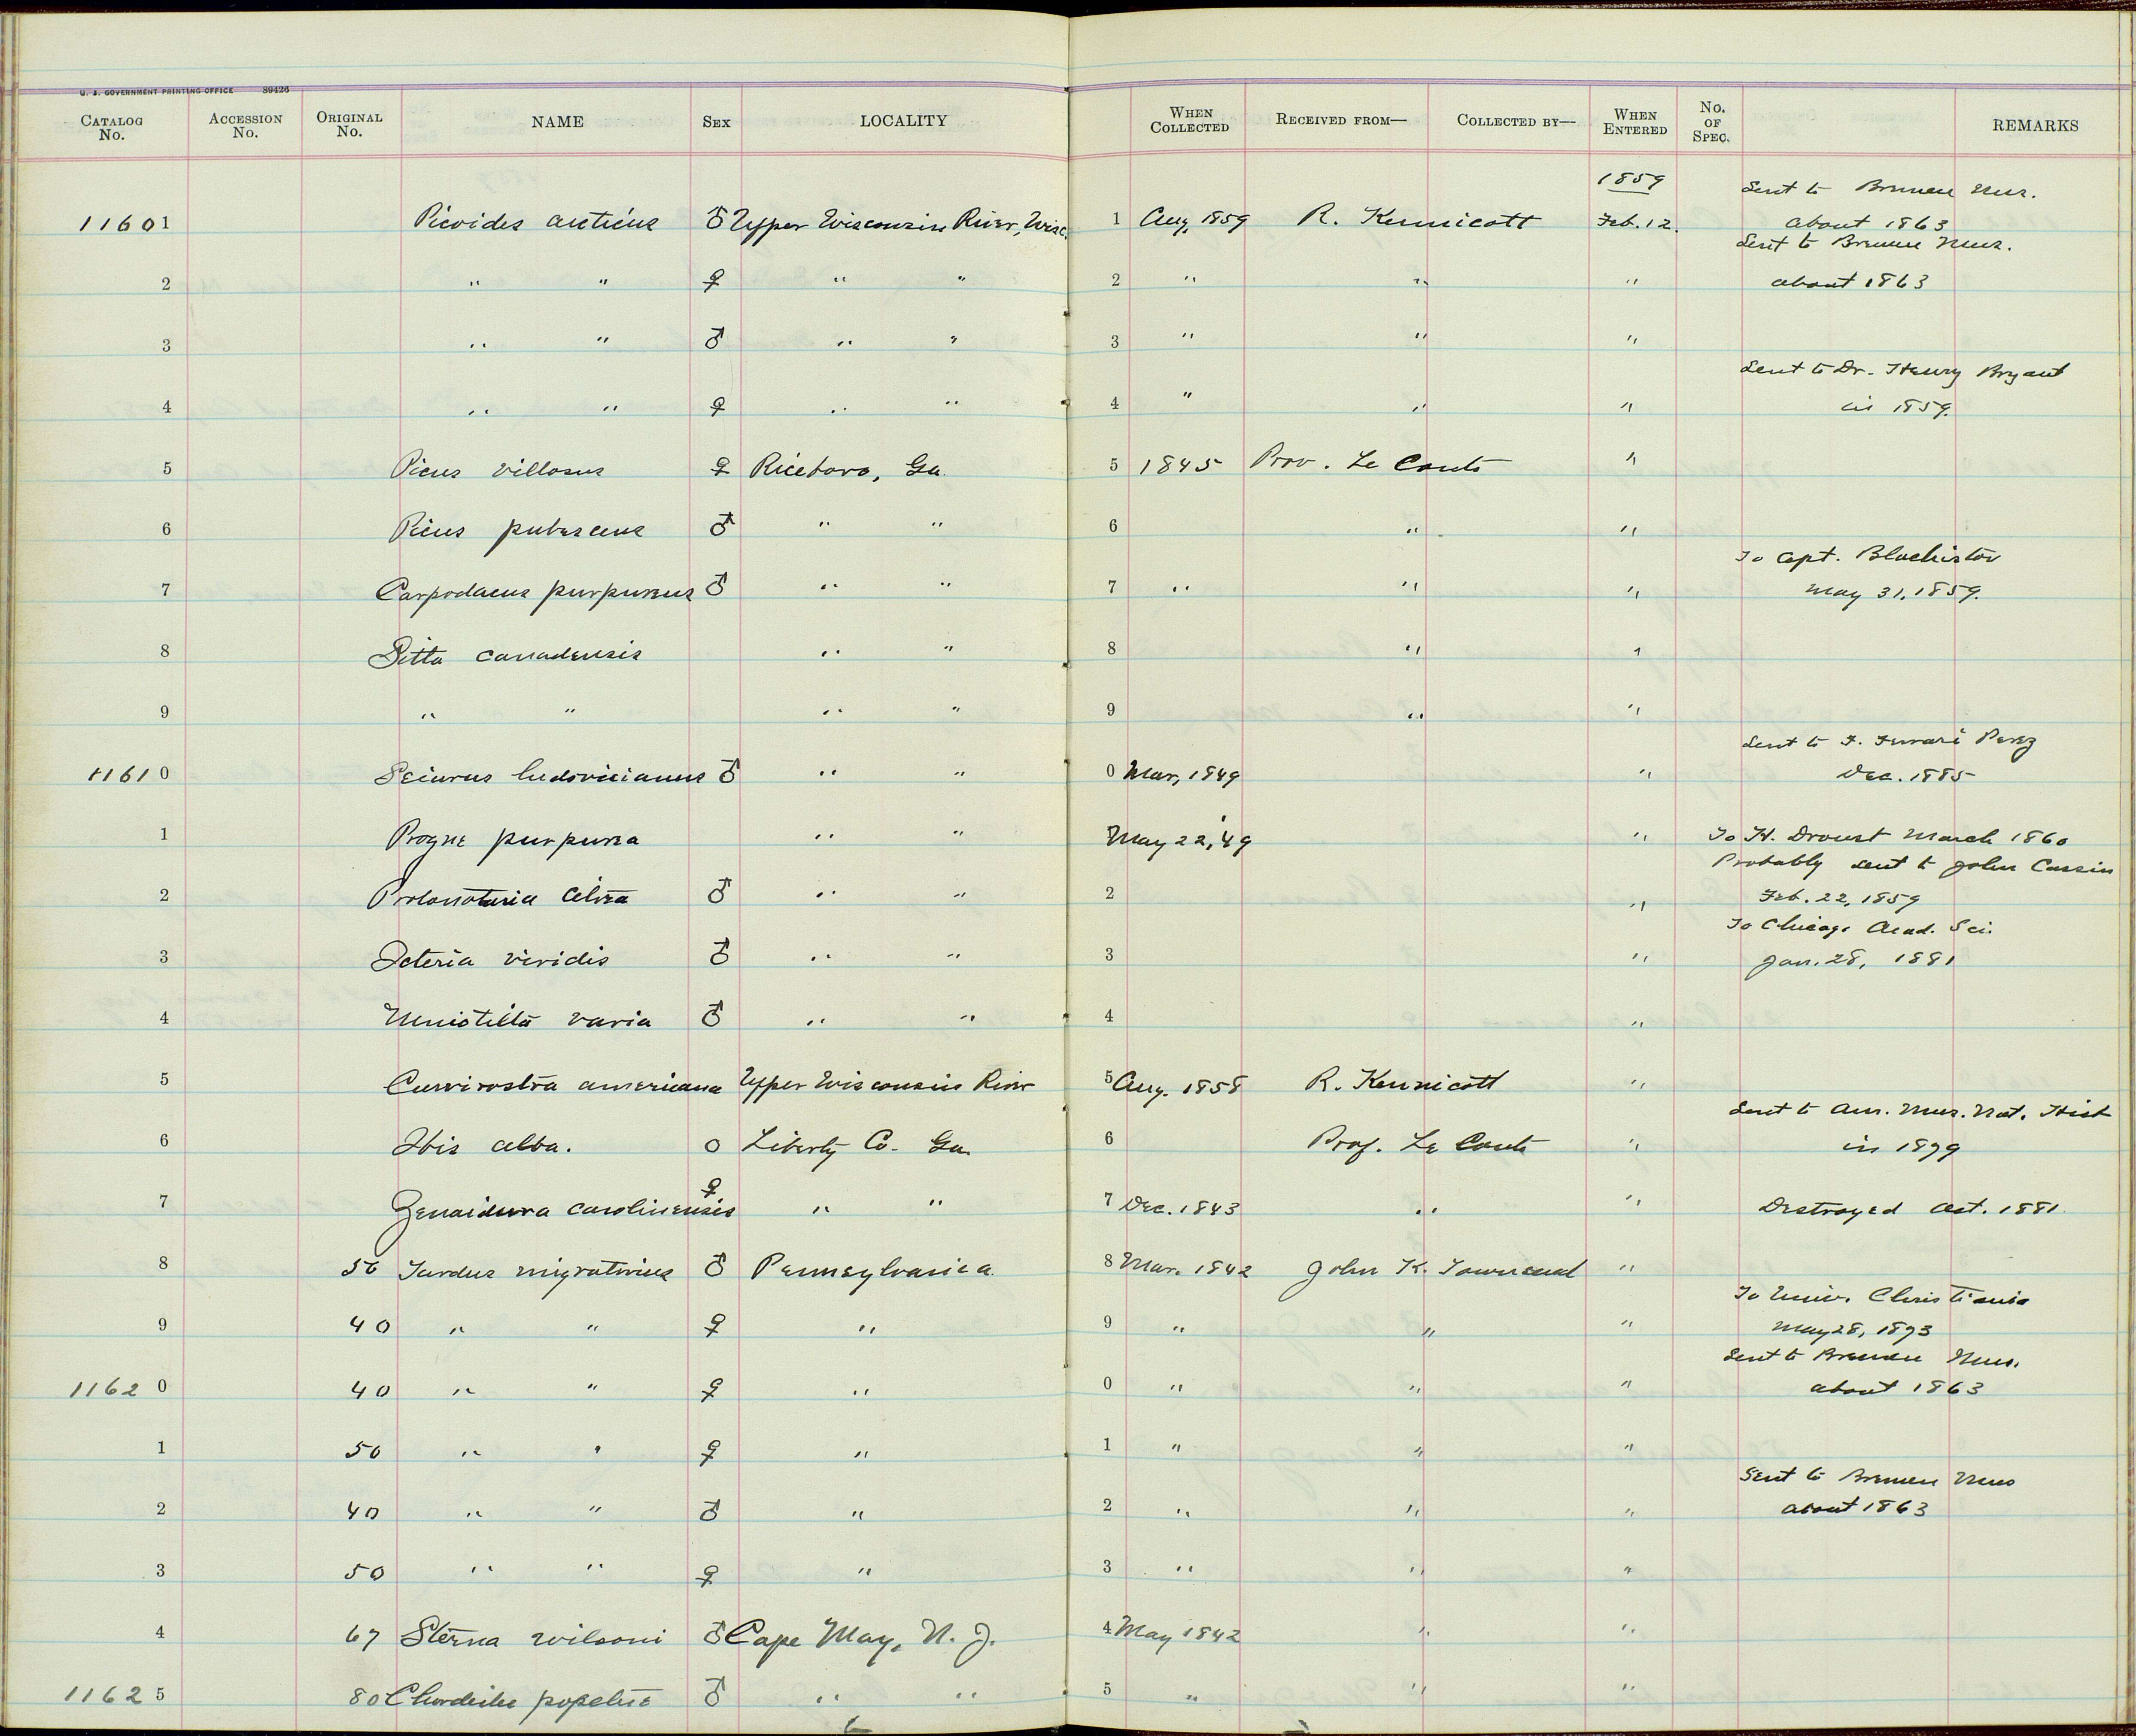 U. S. GOVERNMENT PRINTING OFFICE 89426
CATALOG No. ACCESSION No. ORIGINAL No. NAME SEX LOCALITY WHEN COLLECTED RECEIVED FROM— COLLECTED BY— WHEN ENTERED No. OF SPEC. REMARKS
1859
Sent to Bremen Mus.
11601 Picoides arcticus ♂ Upper Wisconsin River, Wisc. 1 Aug, 1859 R. Kennicott Feb. 12. about 1863
Sent to Bremen Mus.
2 " " ♀ " " 2 " " " about 1863
3 " " ♂ " " 3 " " "
Sent to Dr. Henry Bryant
4 " " ♀ " " 4 " " " in 1859.
5 Picus villosus ♀ Riceboro, Ga. 5 1845 Prov. Le Conte "
6 Picus pubescens ♂ " " 6 " "
To Capt. Blackiston
7 Carpodacus purpureus ♂ " " 7 " " " May 31, 1859.
8 Sitta canadensis " " 8 " "
9 " " " " 9 " "
Sent to F. Ferrari Perez
11610 Seiurus ludovicianus ♂ " " 0 Mar, 1849 " Dec. 1885
1 Progne purpurea " " May 22, '49 " To H. Drouet March 1860
Probably sent to John Cassin
2 Protonotaria citrea ♂ " " 2 " Feb. 22, 1859
To Chicago Acad. Sci.
3 Icteria viridis ♂ " " 3 " Jan. 28, 1881
4 Mniotilta varia ♂ " " 4 "
5 Curvirostra americana Upper Wisconsin River 5 Aug. 1858 R. Kennicott "
Sent to Am. Mus. Nat. Hist
6 Ibis alba. o Liberty Co. Ga. 6 Prof. Le Conte " in 1879
7 Zenaidura carolinensis ♀ " " 7 Dec. 1843 " " Destroyed Oct. 1881
8 56 Turdus migratorius ♂ Pennsylvania 8 Mar. 1842 John K. Townsend "
To Univ. Christiania
9 40 " " ♀ " 9 " " " May 28, 1873
Sent to Bremen Mus.
11620 40 " " ♀ " 0 " " " about 1863
1 50 " " ♀ " 1 " " "
Sent to Bremen Mus
2 40 " " ♂ " 2 " " " about 1863
3 50 " " ♀ " 3 " " "
4 67 Sterna wilsoni ♂ Cape May, N. J. 4 May 1842 " "
11625 80 Chordeiles popetue ♂ " " 5 " " "